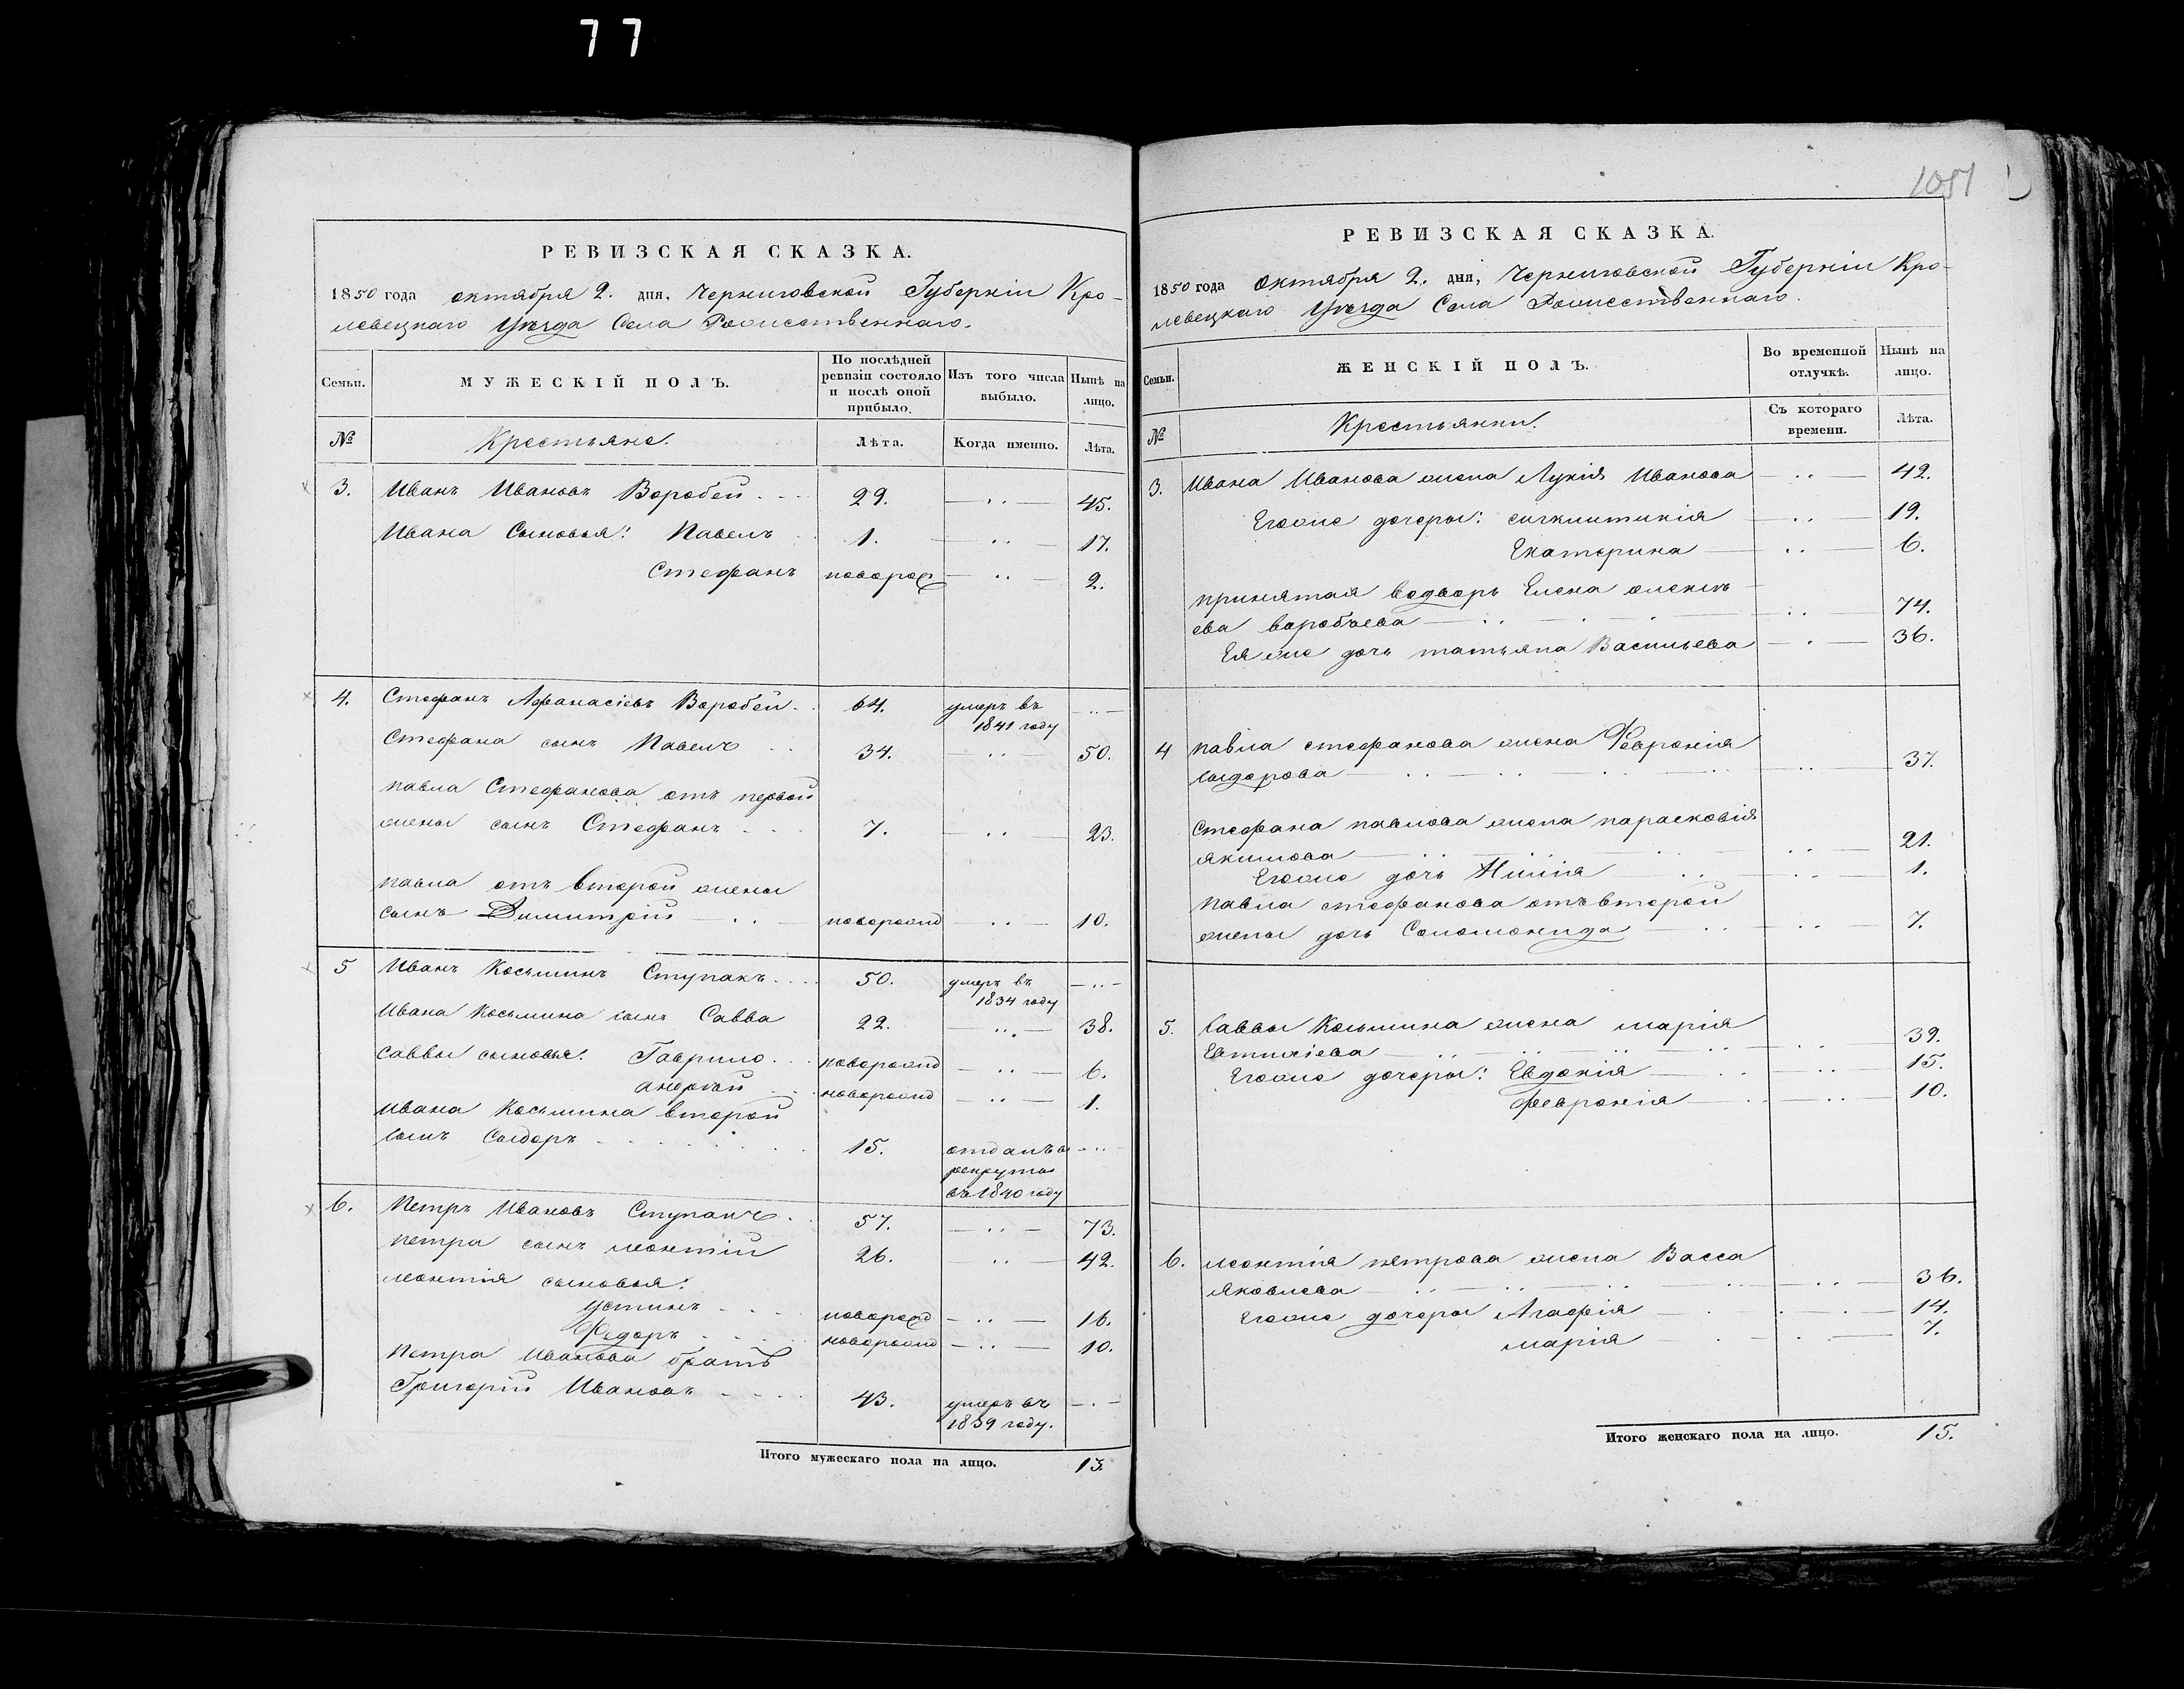 77
РЕВИЗСКАЯ СКАЗКА.
1850 года октября 2. дня, Черниговской Губернiи Кро-
левецкаго Уѣзда Села Рожественнаго.
Семьи.
МУЖЕСКIЙ ПОЛЪ.
По послѣдней ревизiи состояло и послѣ оной прибыло.
Изъ того числа выбыло.
Нынѣ на лицо.
№
Крестьяне.
Лѣта.
Когда именно.
Лѣта.
3. Иванъ Ивановъ Воробей 29. 45.
Ивана Сыновья: Павелъ 1. 17.
Стефанъноворож 2.
4. Стефанъ Афанасiевъ Воробей 64. умеръ въ
1841 году
Стефана сынъ Павелъ 34. 50.
павла Стефанова отъ первой
жены сынъ Стефанъ 7. 23.
павла отъ второй жены
сынъ Димитрiй новорожд 10.
5 Иванъ Косьминъ Ступакъ 50. умеръ въ
1834 году
Ивана Косьмина сынъ Савва 22. 38.
Саввы сыновья: Гаврило новорожд 6.
андрей новорожд 1.
Ивана Косьмина второй
сынъ Сыдоръ 15. отданъ в
рекруты
въ 1840 году
6. Петръ Ивановъ Ступакъ 57. 73.
петра сынъ леонтiй 26. 42.
леонтiя сыновья:
устинъ новорожд 16.
Федоръ новорожд 10.
Петра Иванова братъ
Григорiй Ивановъ 43. умеръ въ
1839 году.
Итого мужескаго пола на лицо. 13.
1051
РЕВИЗСКАЯ СКАЗКА.
1850 года Октября 2. дня, Черниговской Губернiи Кро-
левецкаго Уѣзда Села Рожественнаго.
Семьи.
ЖЕНСКIЙ ПОЛЪ.
Во временной отлучкѣ.
Нынѣ на лицо.
№
Крестьянки.
Съ котораго времени.
Лѣта.
3. Ивана Иванова жена Лукiя Иванова 42.
Егоже дочеры: 19.
Екатерина 6.
принятая водворъ Елена
ева воробъева 74.
Ея же дочь татьяна Васильева 36.
4 павла стефанова жена Феvронiя
сыдорова 37.
Стефана павлова жена парасковiя
якимова 21.
Егоже дочь 1.
павла стефанова отъ второй
жены дочь Соломонида 7.
5. Саввы Косьмина жена марiя
Евтихiева 39.
Егоже дочеры: Евдокiя 15.
февронiя 10.
6. леонтiя петрова жена Васса
яковлева 36.
Егоже дочеры Агафiя 14.
марiя 7.
Итого женскаго пола на лицо. 15.